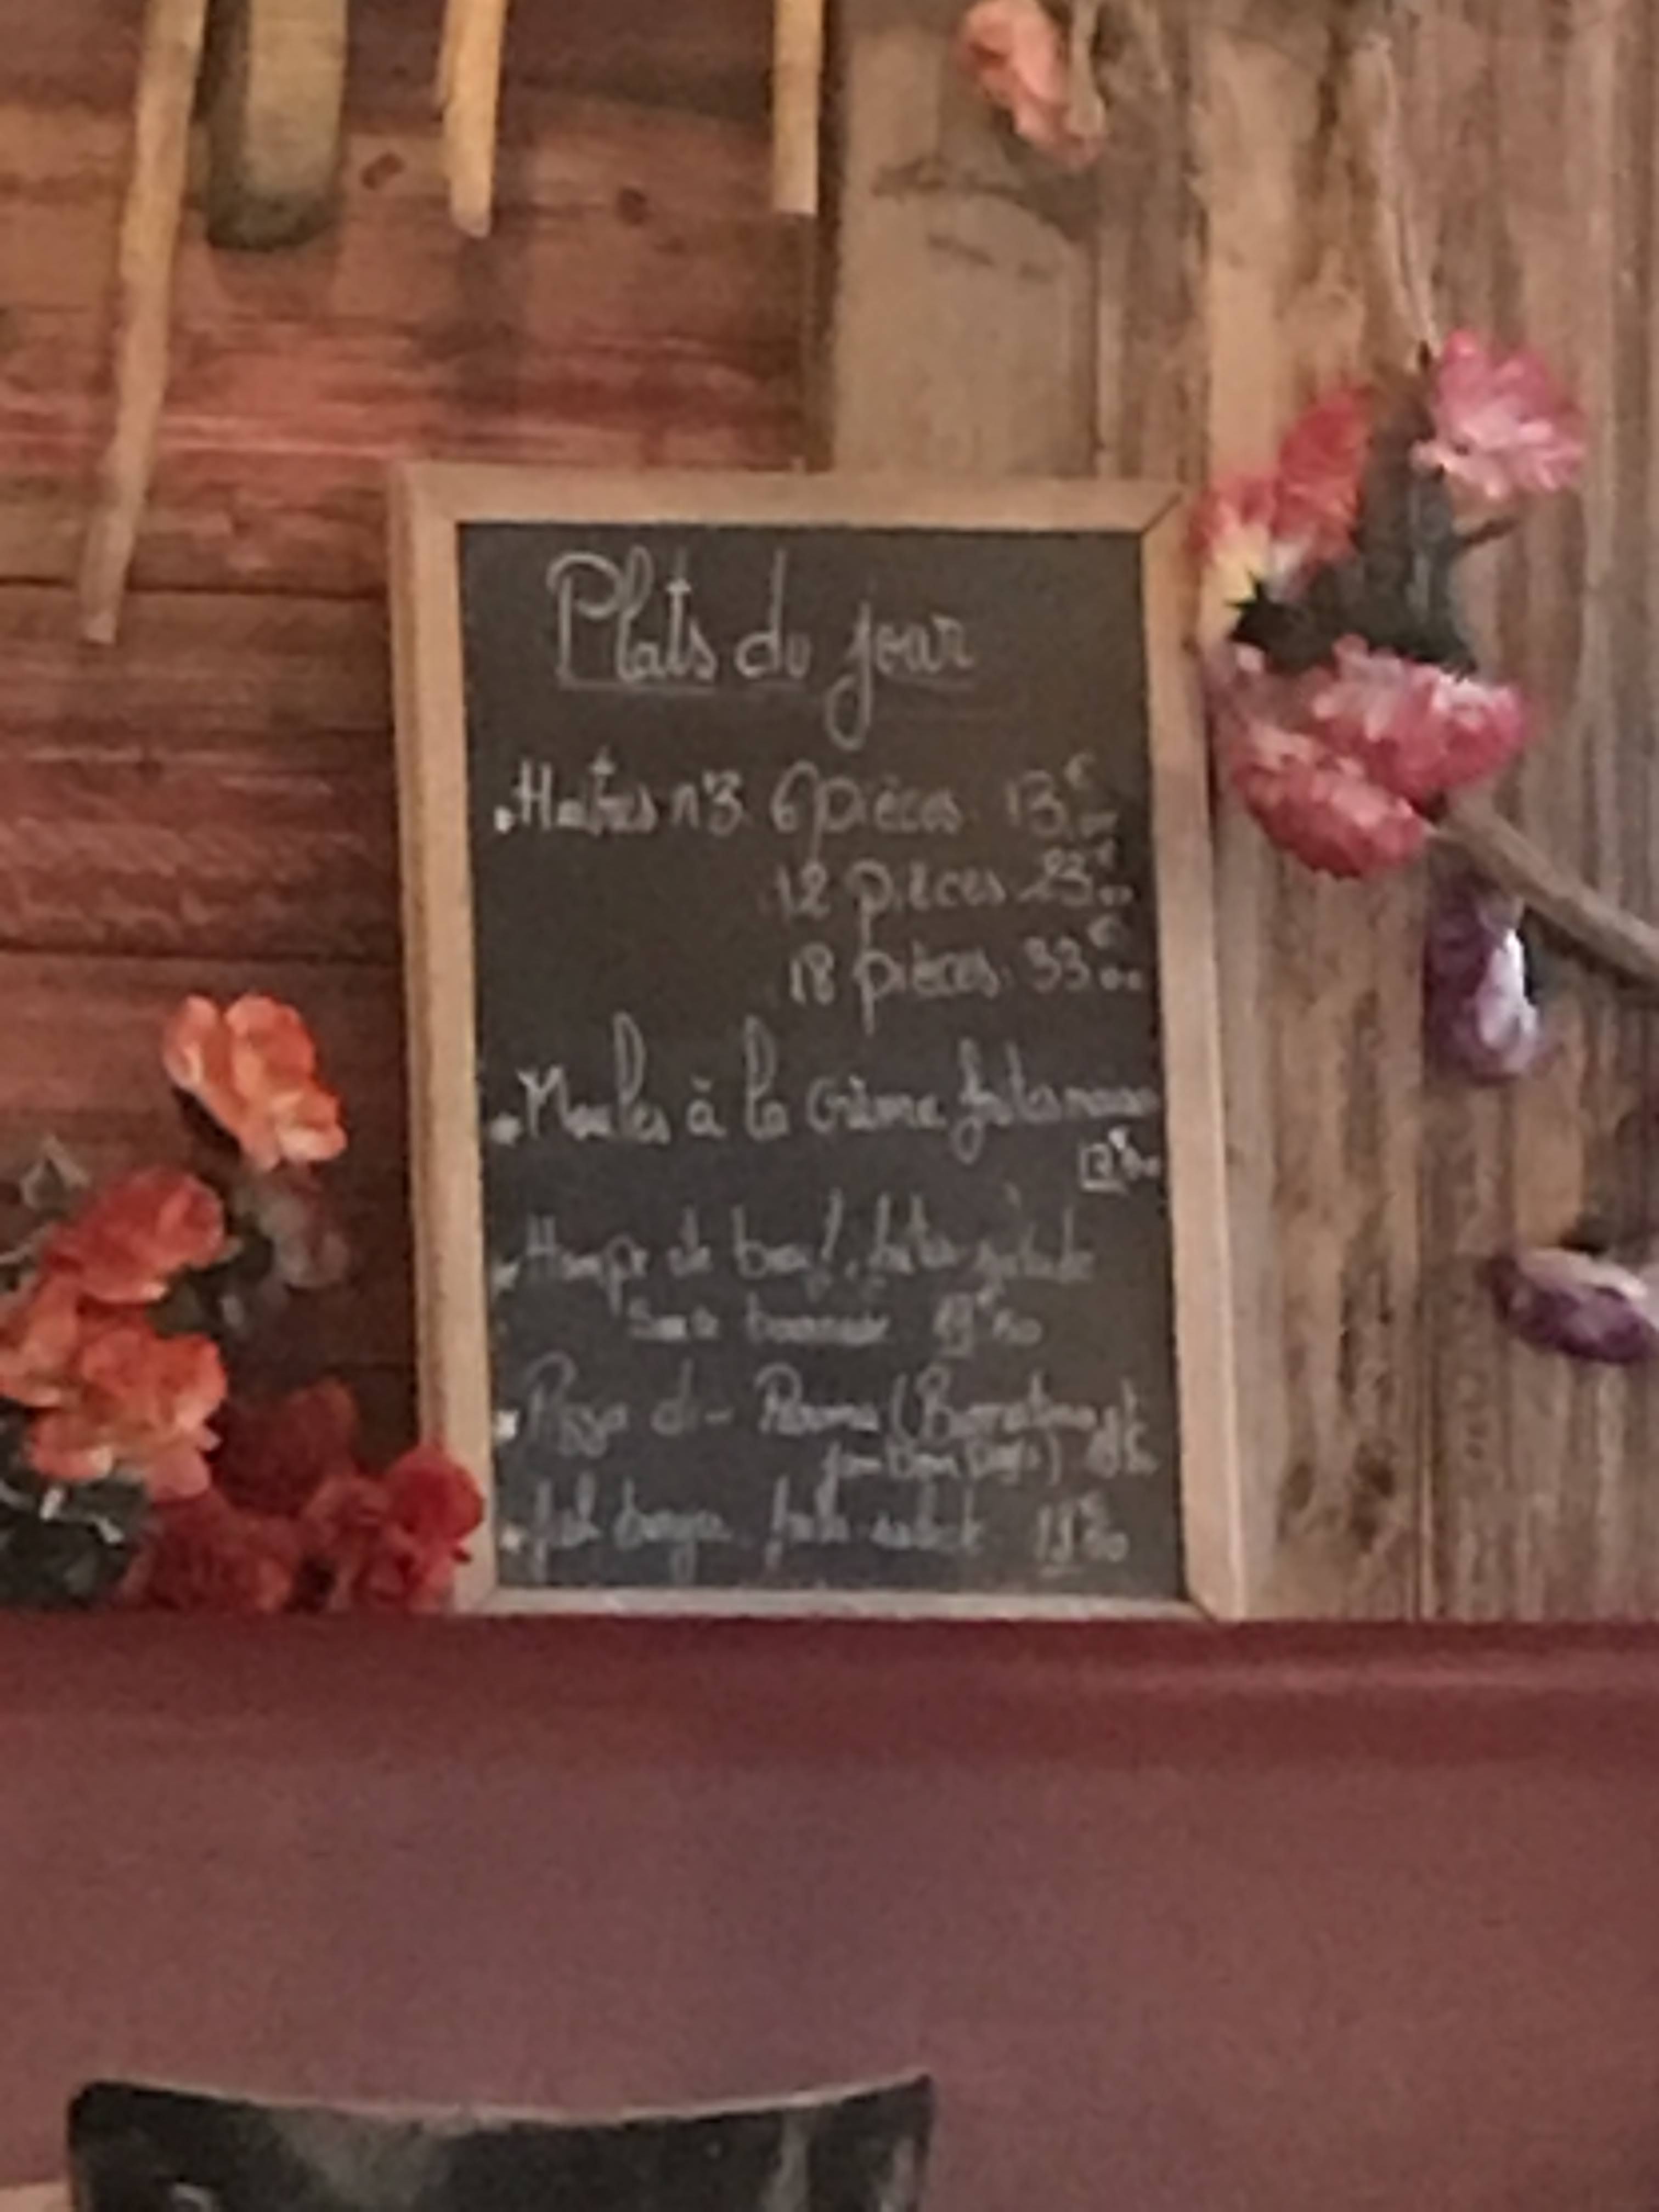 Plats du jour
Huîtres n°3 6 pièces 13€00
12 pièces 23€00
18 pièces 33€00
Moules à la crème frites maison
Hampe de bœuf, frites salade
Pizza di Parma (Burratina et
jambon
fish burger frites salade